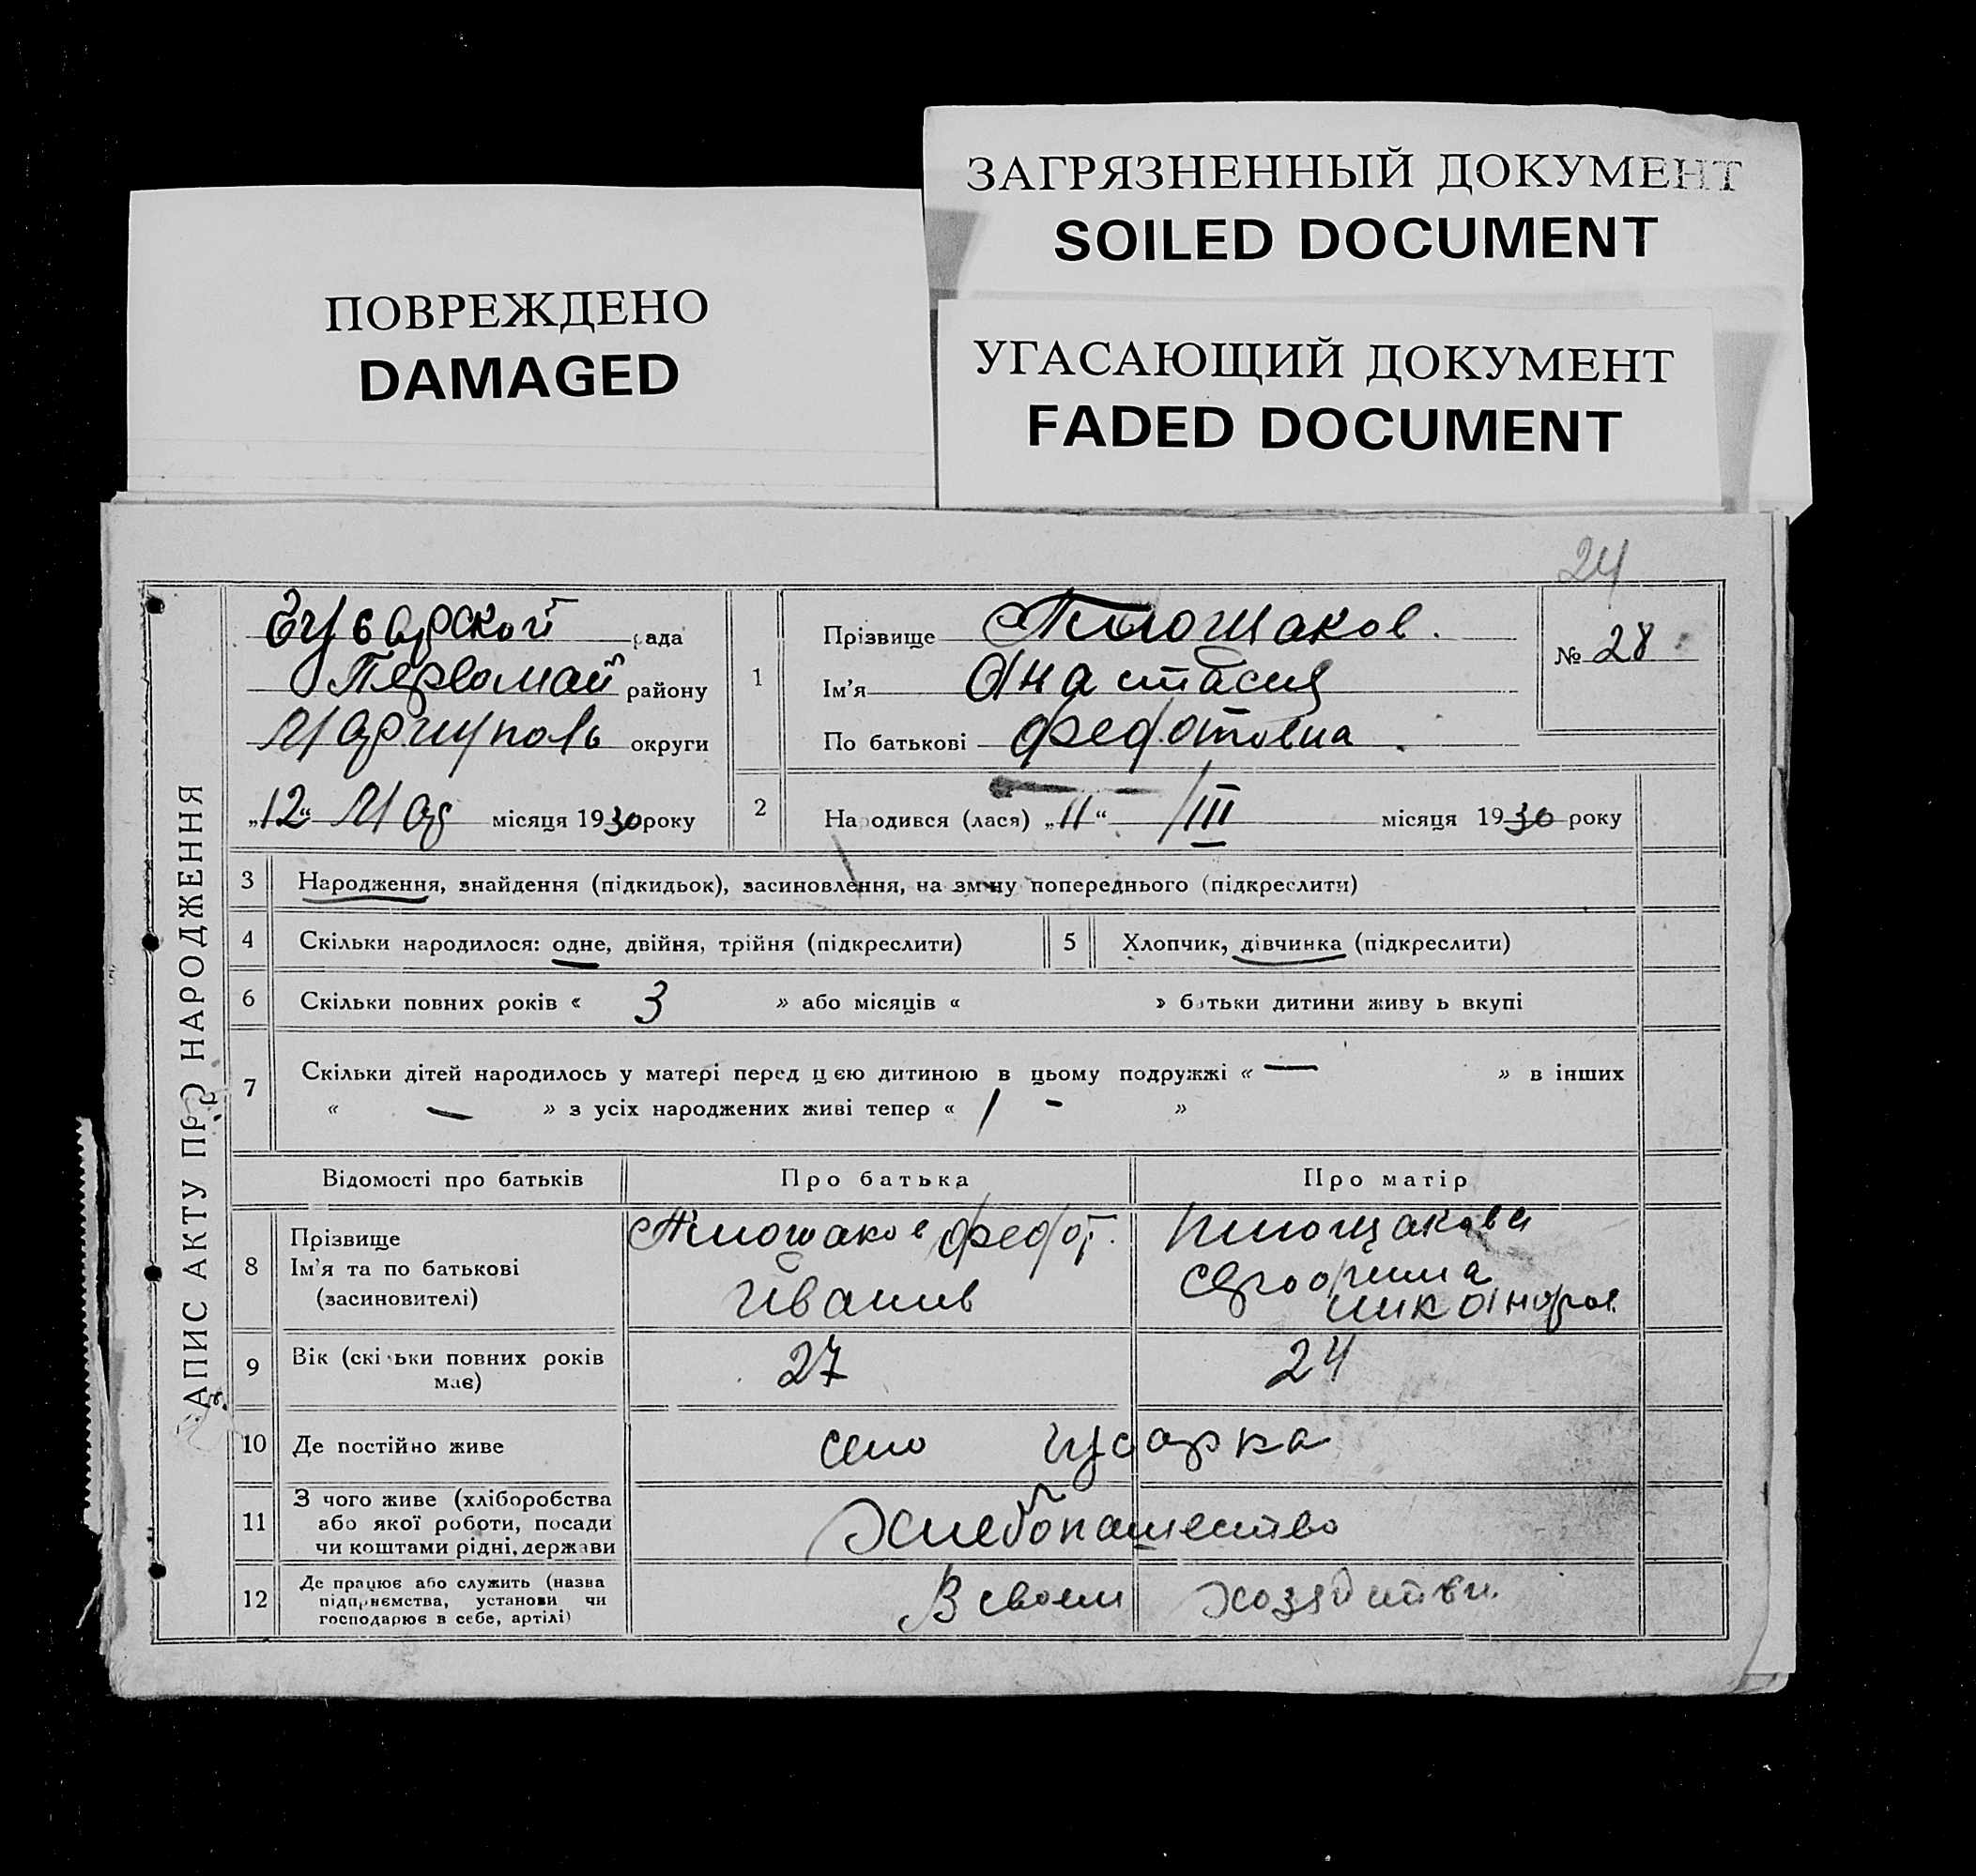 ЗАГРЯЗНЕННЫЙ ДОКУМЕНТ
SOILED DOCUMENT
ПОВРЕЖДЕНО
DAMAGED
УГАСАЮЩИЙ ДОКУМЕНТ
FADED DOCUMENT
24
АПИС АКТУ ПРО НАРОДЖЕННЯ
рада
Первомай району
Мариуполь округи
„12“ Мая місяця 1930 року
1
Прізвище
Ім'я Анастасия
По батькові Федотовна
№ 28
2
Народився (лася) „11“ /III місяця 1930 року
3 Народження, знайдення (підкидьок), засиновлення, на зміну попереднього (підкреслити)
4 Скільки народилося: одне, двійня, трійня (підкреслити)
5 Хлопчик, дівчинка (підкреслити)
6 Скільки повних років « 3 » або місяців « » батьки дитини живуть вкупі
7 Скільки дітей народилось у матері перед цією дитиною в цьому подружжі « — » в інших
« — » з усіх народжених живі тепер « / - »
Відомості про батьків
Про батька
Про матір
8 Прізвище
Ім'я та по батькові
(засиновителі)
Федот
Иванив
9 Вік (скільки повних років
має)
27
24
10 Де постійно живе
село Гусарка
11 З чого живе (хліборобства
або якої роботи, посади
чи коштами рідні, держави
Хлебопашество
12 Де працює або служить (назва
підприємства, установи чи
господарює в себе, артілі)
В своем